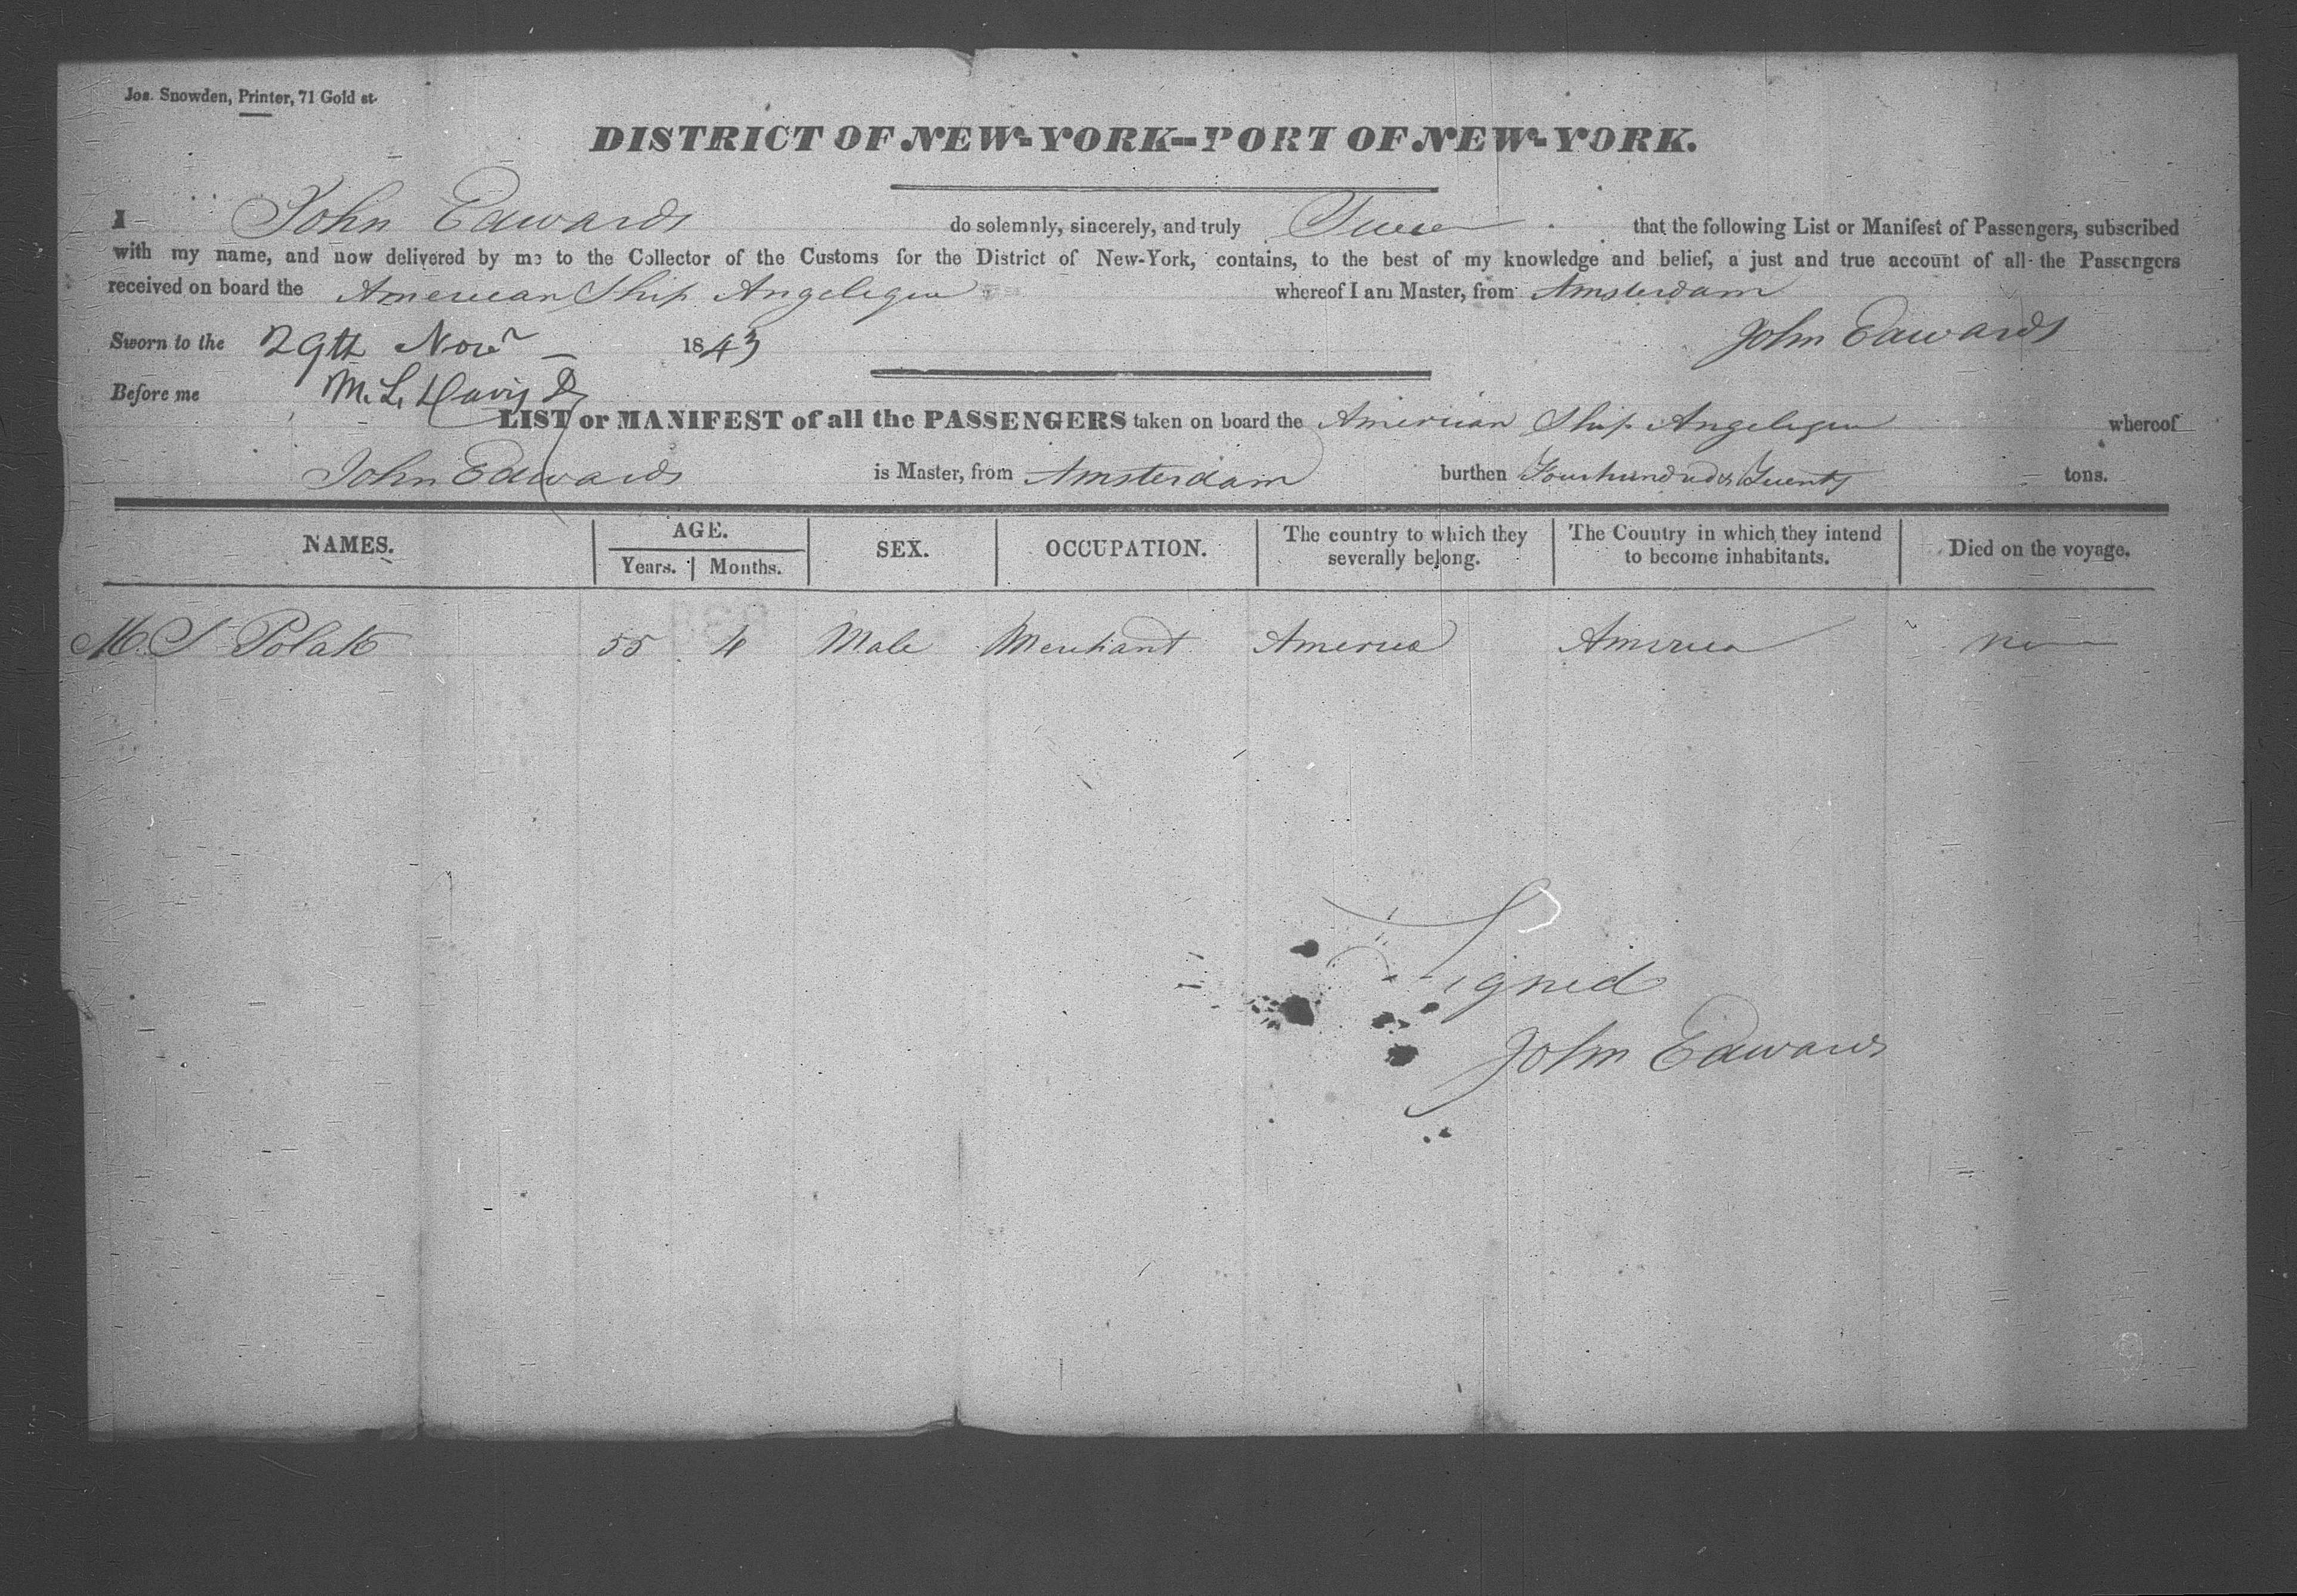 Jos. Snowden, Printer, 71 Gold st.
DISTRICT OF NEW-YORK--PORT OF NEW-YORK.
I John Edwards do solemnly, sincerely, and truly Swear that the following List or Manifest of Passengers, subscribed
with my name, and now delivered by me to the Collector of the Customs for the District of New-York, contains, to the best of my knowledge and belief, a just and true account of all the Passengers
received on board the American Ship Angelique whereof I am Master, from Amsterdam
Sworn to the 29th Novr 1843 John Edwards
Before me M. L. Davis
LIST or MANIFEST of all the PASSENGERS taken on board the American Ship Angelique whereof
John Edwards is Master, from Amsterdam burthen Four hundred & Twenty tons.
NAMES. AGE. SEX. OCCUPATION. The country to which they severally belong. The Country in which they intend to become inhabitants. Died on the voyage.
Years. Months.
M. S Polak 55 4 Male Merchant America America
Signed
John Edwards